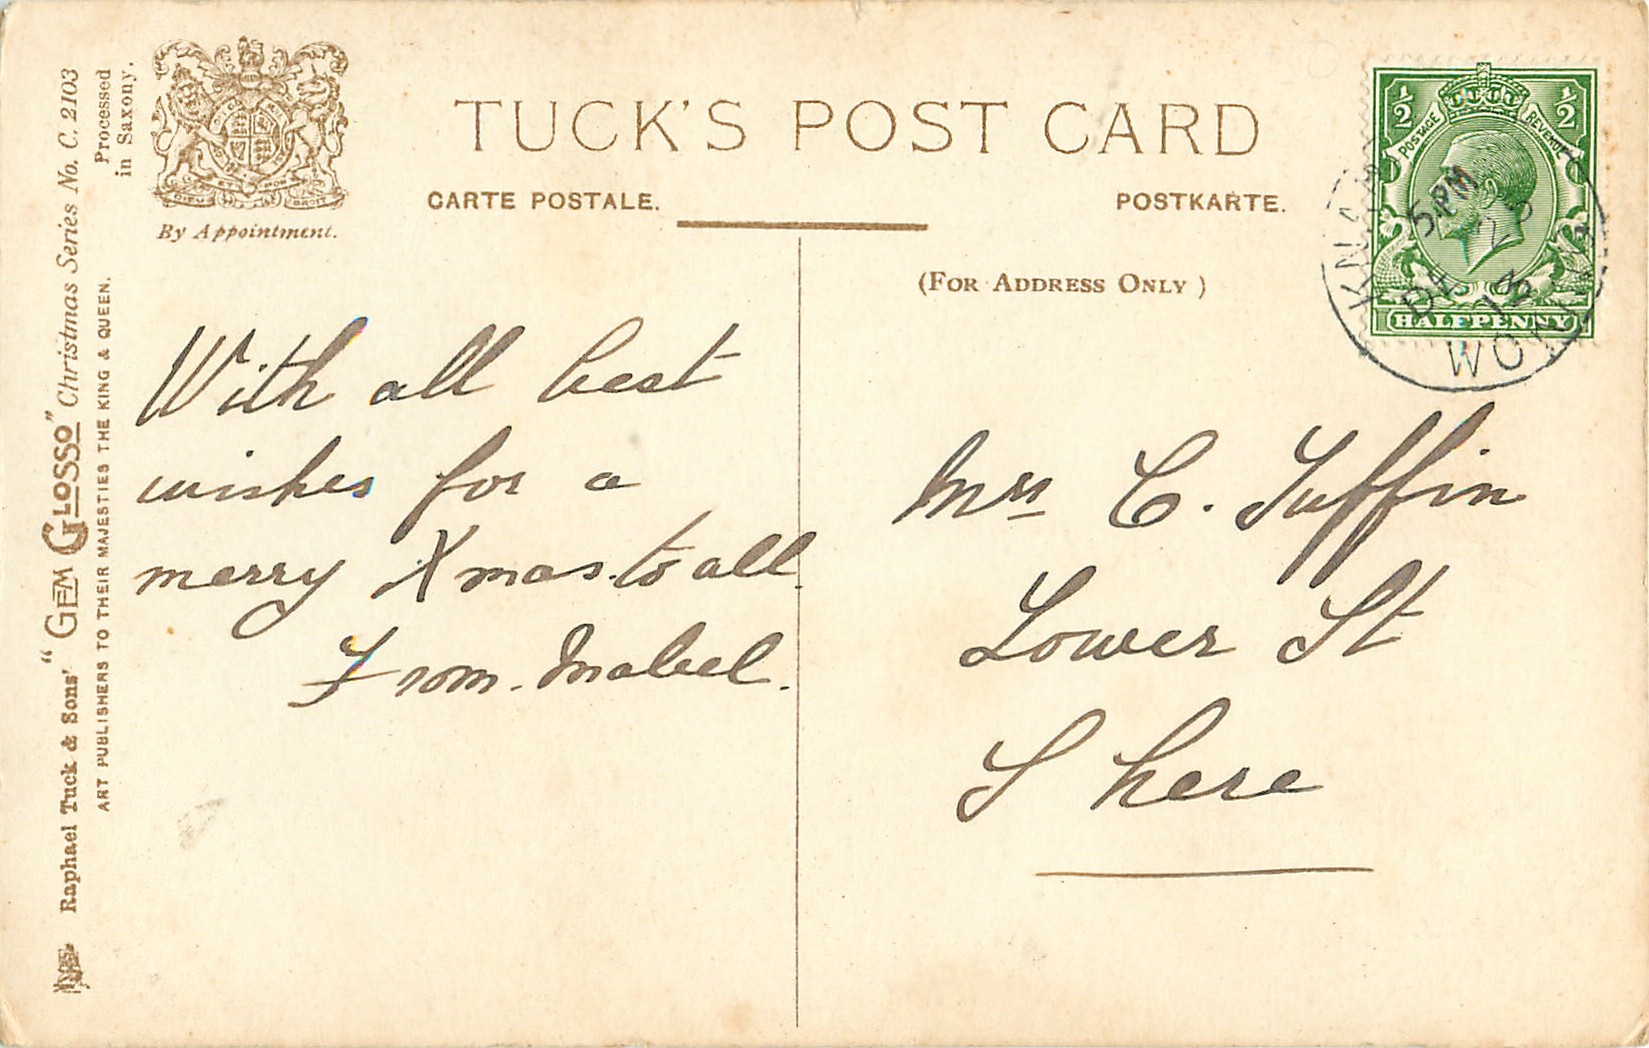 TUCK'S POST CARD
CARTE POSTALE.
POSTKARTE.
(FOR ADDRESS ONLY)
By Appointment.
Processed
in Saxony.
Raphael Tuck & Sons' "GEM GLOSSO" Christmas Series No. C. 2103
ART PUBLISHERS TO THEIR MAJESTIES THE KING & QUEEN.
½ ½
POSTAGE REVENUE
HALFPENNY
5 PM
DE
With all best
wishes for a
merry Xmas to all.
From Mabel.
Mrs C. Tuffin
Lower St
S here